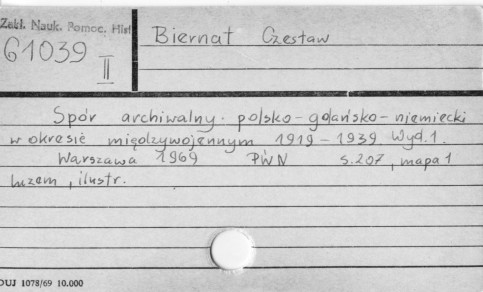 Zakł. Nauk. Pomoc. Hist
61039
II
Biernat Czesław
Spór archiwalny polsko-gdańsko-niemiecki
w okresie międzywojennym 1919-1939. Wyd. 1.
Warszawa 1969 PWN s. 207, mapa 1
luzem, ilustr.
DUJ 1078/69 10.000